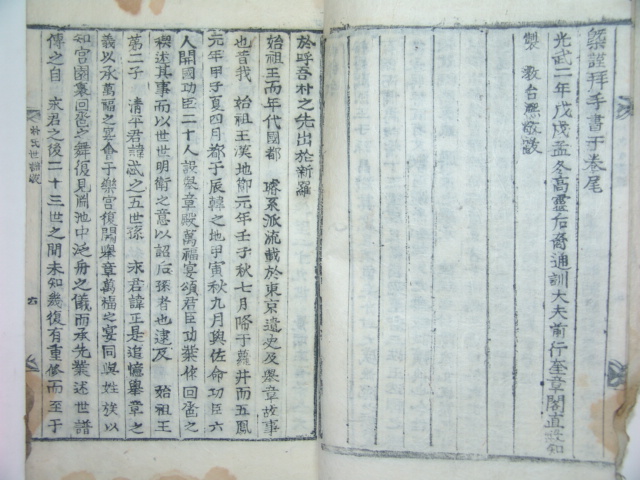 槩謹拜手書于卷尾
光武二年戊戌孟冬高靈后裔通訓大夫前行奎章閣直
製 教台熈敬跋
於呼吾朴之先出於新羅
始祖王而年代國都 璿系派流載於東京遺史及舉章故事
也昔我 始祖王漢地節元年壬子秋七月降于蘿井而五鳳
元年甲子夏四月都于辰韓之地甲寅秋九月與佐命功臣六
人開國功臣二十人設舉章殿萬福宴頌君臣功業作回舞之
稧述其事而以世世明衛之意以詔后孫者也逮及 始祖王
萬二子 清平君諱武之五世孫 求君諱正是追憶舉章之
義以承萬福之宴會于樂宮復開舉章萬福之宴同與姓族以
知宮園裏回舞之舞復見圃池中泛舟之儀而承先業述世譜
傳之自 求君之後二十三世之間未知幾復有重修而至于
朴氏世譜跋
六